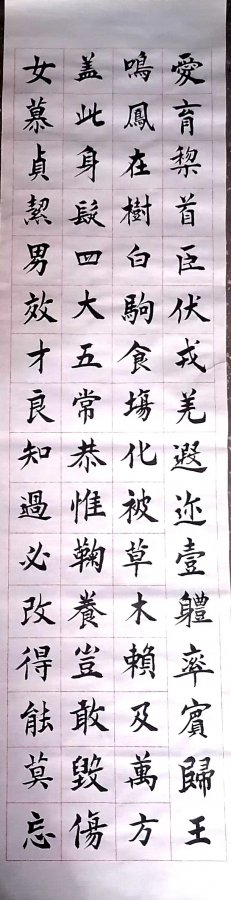 愛育黎首臣伏戎羌遐迩壹軆率賓歸王
鳴鳳在樹白駒食場化被草木賴及萬方
盖此身髮四大五常恭惟鞠養豈敢毀傷
女慕貞潔男效才良知過必改得能莫忘